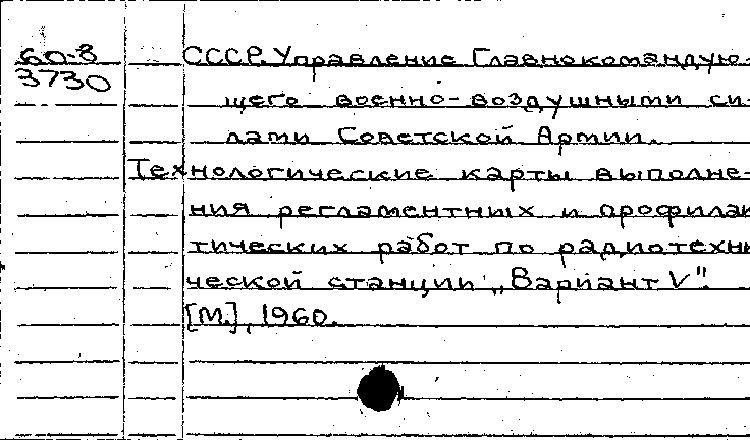 60-8 СССР. Управление Главнокомандую-
3730
щего военно-воздушными си-
лами Советской Армии.
Технологические карты выполне-
ния регламентных и профилак
тических работ по радиотехни
ческой станции „Вариант V".
[М.], 1960.